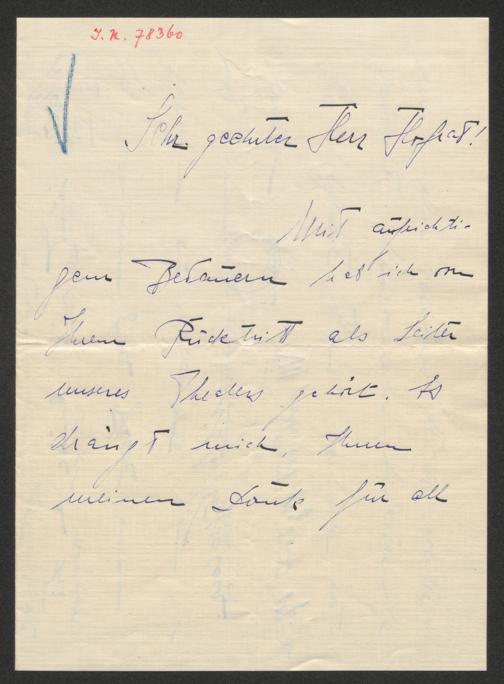 I.N. 78360
Sehr geehrter Herr Hofrat!
Mit aufrichti-
gem Bedauern hab ich von
Ihrem Rücktritt als Leiter
unseres Theaters gehört. Es
drängt mich, Ihnen
meinen Dank für all